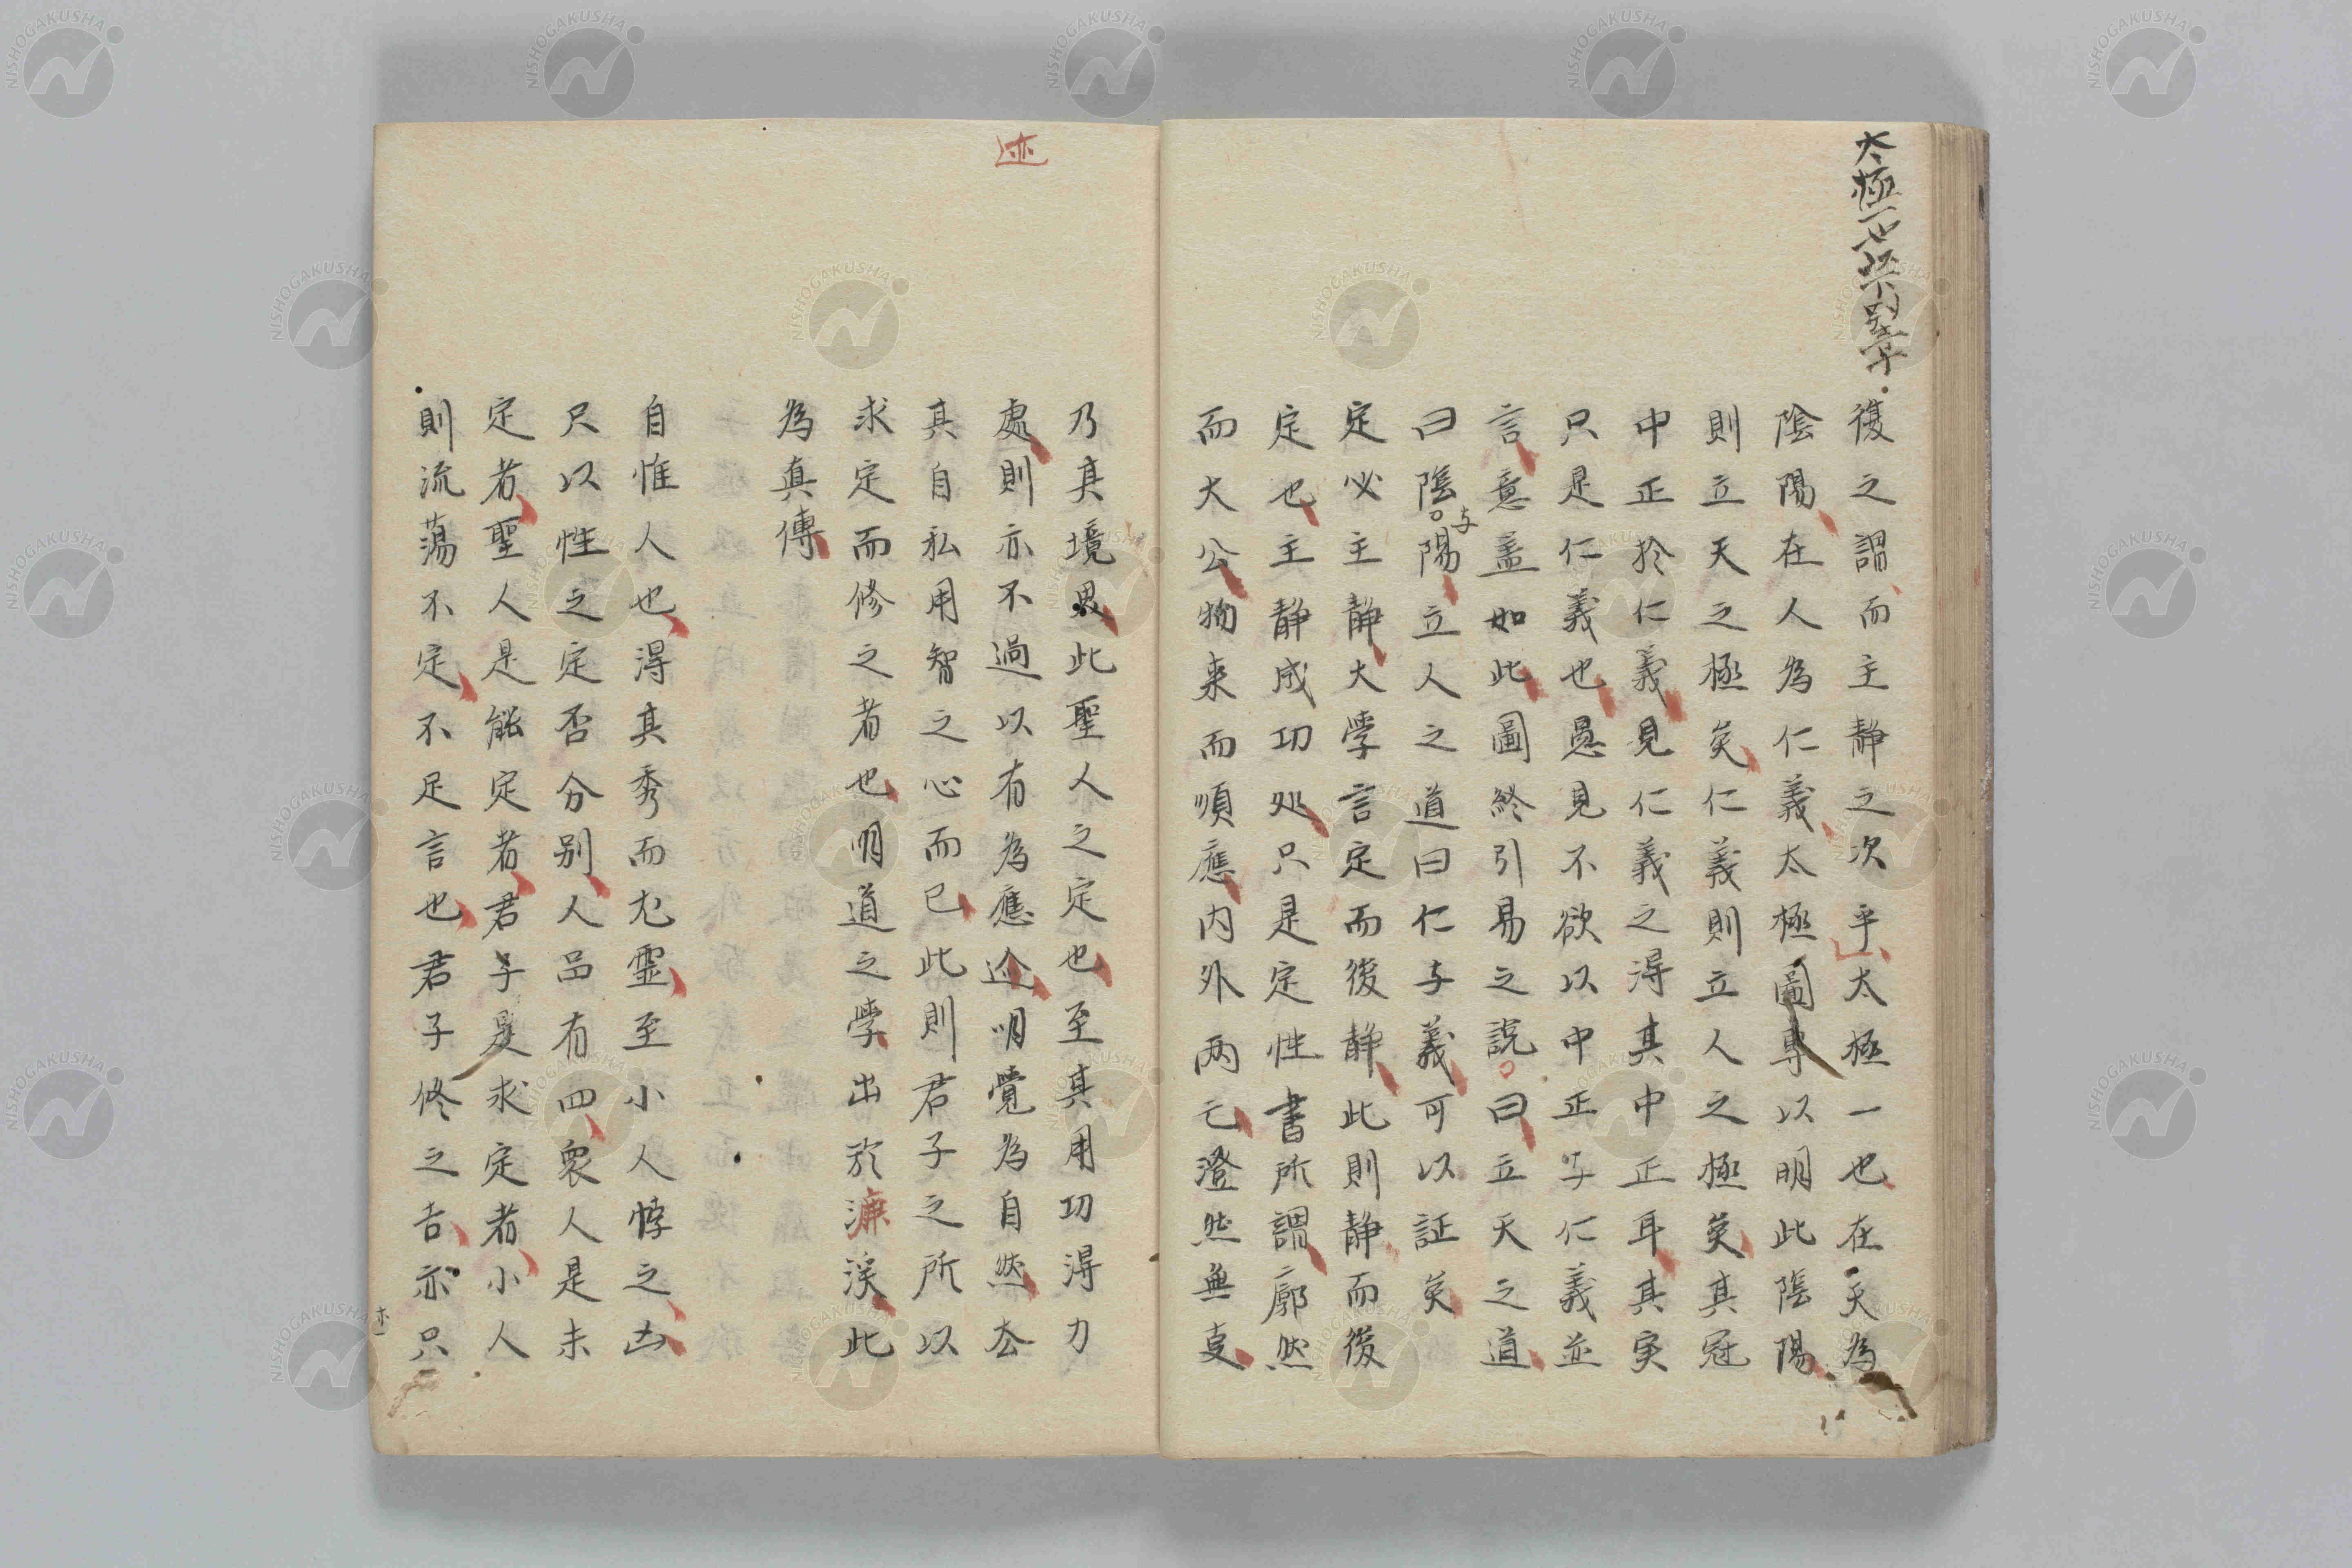 太極一也此別章
復之謂而主靜之次乎太極一也在天為
陰陽在人為仁義太極圖專以明此陰陽
則立天之極矣仁義則立人之極矣其冠
中正於仁義見仁義之得其中正耳其实
只是仁義也愚見不欲以中正与仁義並
言意盖如此圖終引易之説曰立天之道
曰陰与陽立人之道曰仁与義可以証矣
定必主静大学言定而後静此則静而後
定也主静成功処只是定性書所謂廓然
而大公物来而順應内外两亡澄然無事
迹
乃其境界此聖人之定也至其用功得力
處則亦不過以有為應迹明覺為自然去
其自私用智之心而已此則君子之所以
求定而修之者也明道之學出於濂溪此
為真傳
自惟人也得其秀而尤靈至小人悖之凶
只以性之定否分別人品有四衆人是未
定者聖人是能定者君子是求定者小人
則流蕩不定不足言也君子修之吉亦只
NISHOGAKUSHA